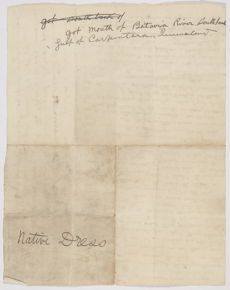 got south bank of
got Mouth of Batavia River South bank
Gulf of Carpentaria, Queensland
Native Dress